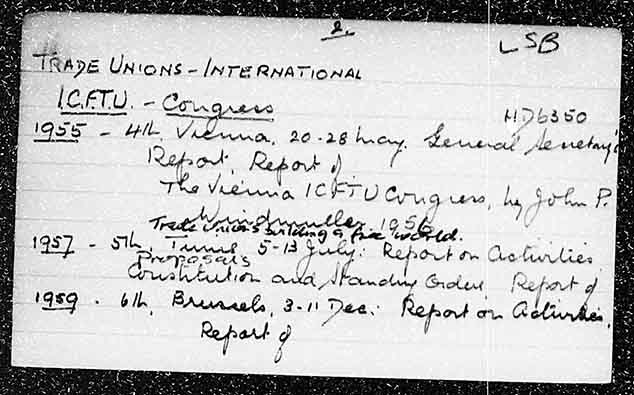 2.
LSB
TRADE UNIONS - INTERNATIONAL
I.C.F.T.U. - Congress
HD6350
1955 - 4th, Vienna, 20-28 May. General Secretary's
Report, Report of
The Vienna ICFTU Congress, by John P.
Windmuller 1956
Trade Unions building a free world.
1957 - 5th, Tunis 5-13 July: Report on Activities
Proposals
Constitution and Standing Orders Report of
1959 - 6th, Brussels, 3-11 Dec: Report on Activities,
Report of